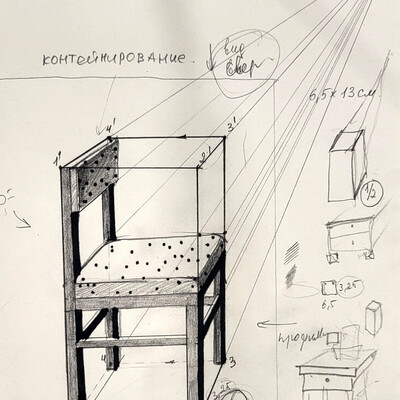 контейнирование.
вид
сверху
6,5 х 13 см.
4'
3'
1'
2'
1/2
3,25
6,5
профиль
4
3
3,25